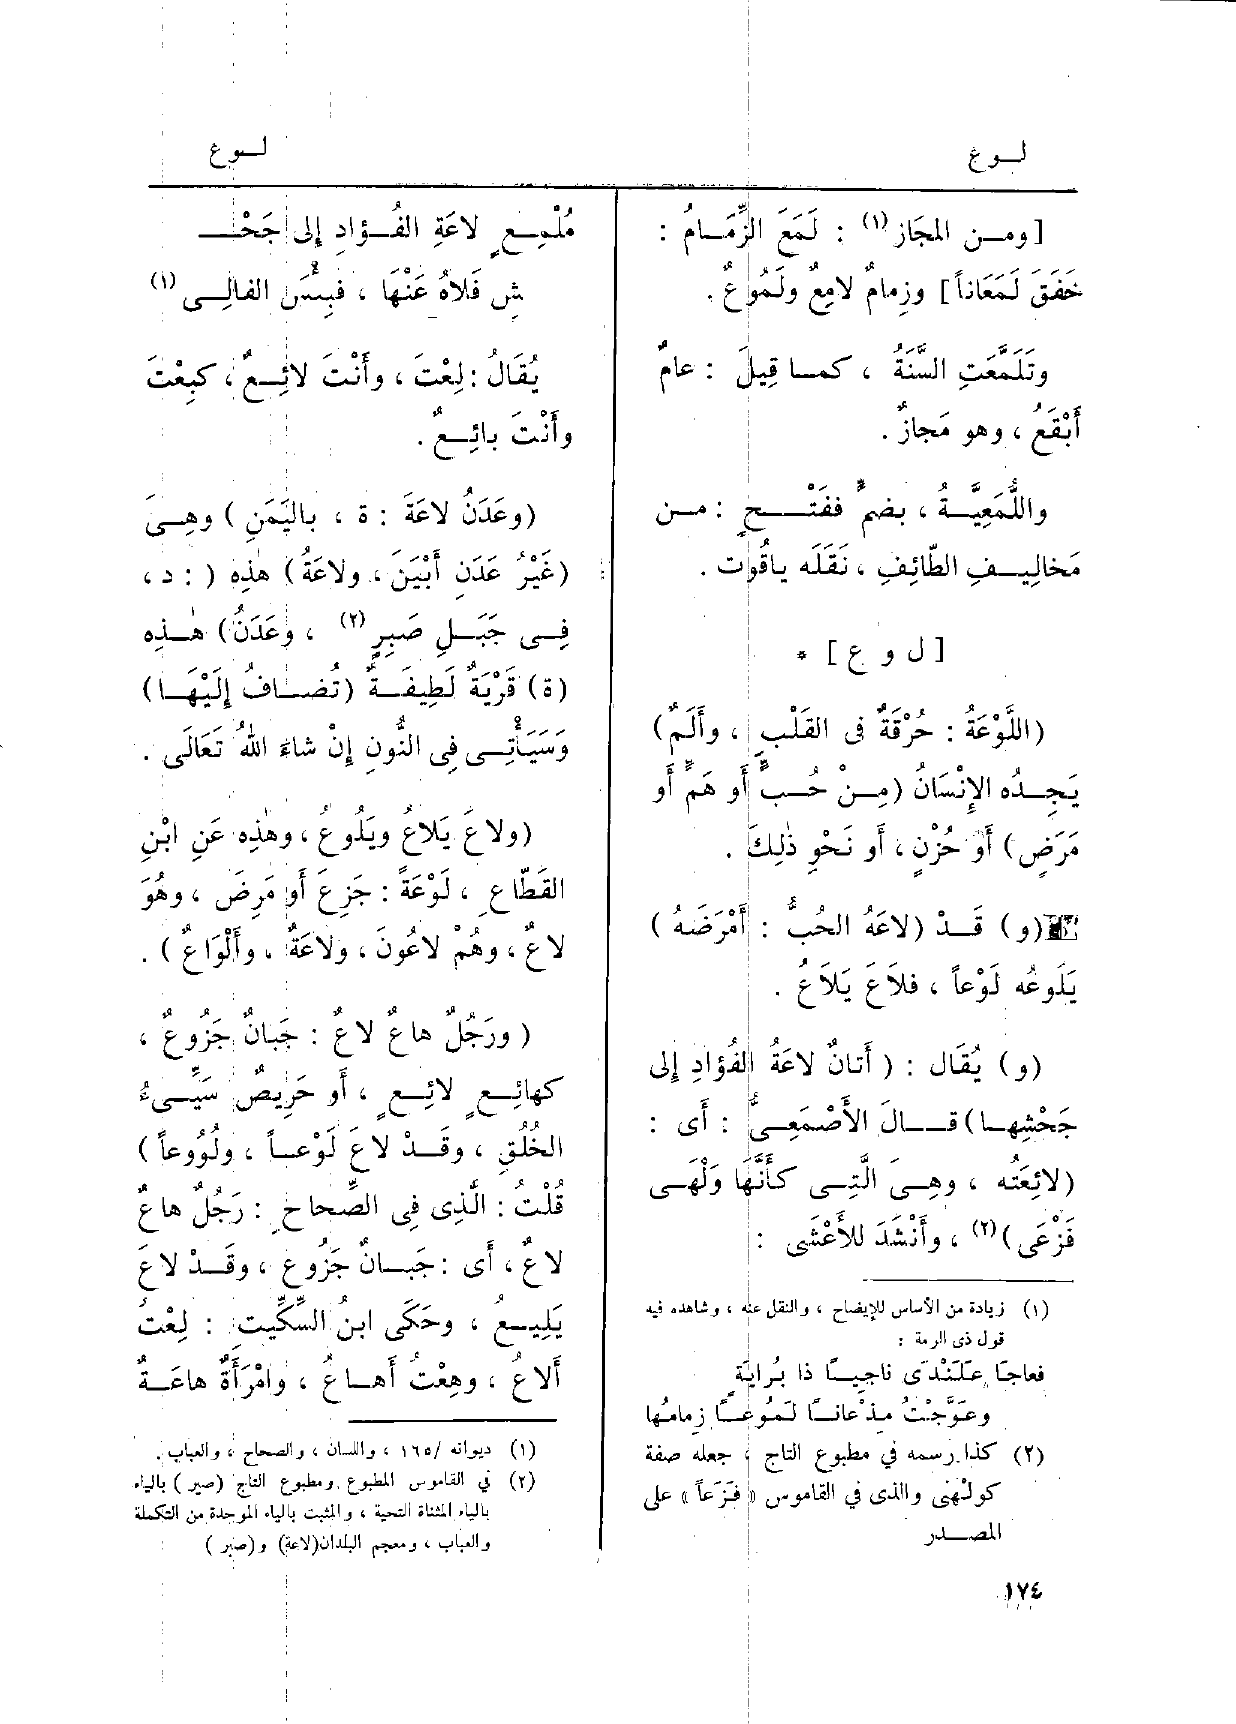 لـوع
لـوع
[ومـن المجَاز (١) : لَمَعَ الزِّمَـامُ :
خَفَقَ لَمَعَاناً] وزِمامٌ لامِعٌ ولَمُوعٌ .
وتَلَمَّعَتِ السَّنَةُ ، كمـا قِيلَ : عامٌ
أَبْقَعُ ، وهو مَجازٌ .
واللُّمَعِيَّـةُ ، بضمٍّ ففَتْـــحٍ : مـن
مَخالِيـفِ الطّائِفِ ، نَقَلَه ياقُوت .
[ ل و ع ] *
(اللَّوْعَةُ : حُرْقَةٌ فى القَلْبِ ، وأَلَمٌ)
يَجِـدُه الإِنْسَانُ (مِـنْ حُـبٍّ أَو هَمٍّ أَو
مَرَضٍ) أَوْ حُزْنٍ ، أَو نَحْوِ ذٰلِكَ .
(و) قَـدْ (لاعَهُ الحُبُّ : أَمْرَضَهُ )
يَلَوعُه لَوْعاً ، فلاَعَ يَلاَعُ .
(و) يُقَال : ( أَتانٌ لاعَةُ الفُؤادِ إِلى
جَحْشِهـا) قـــالَ الأَصْمَعِـىُّ : أَى :
(لائِعَتُه ، وهِـىَ الَّتِـى كأَنَّهَا وَلْهَـى
فَزْعَى) (٢) ، وأَنْشَدَ للأَعْشَى :
(١) زيادة من الأساس للإيضاح ، والنقل عنه ، وشاهده فيه
قول ذى الرمة :
فعاجَا عَلَنْدًى ناجِيـًا ذا بُرايَةٍ
وعَوَّجْتُ مِذْعانـًا لَمُوعـًا زِمامُها
(٢) كذا رسمه في مطبوع التاج ، جعله صفة
كولْهَى والذى في القاموس « فَزَعاً » على
المصـدر
مُلْمِـعٍ لاعَةِ الفُـؤادِ إِلى جَحْـــ
شٍ فَلاهُ عَنْهَا ، فبِئْسَ الفالِـى (١)
يُقَالُ : لِعْتَ ، وأَنْتَ لائِـعٌ ، كبِعْتَ
وأَنْتَ بائِـعٌ .
(وعَدَنُ لاعَةَ : ة ، بالْيَمَنِ ) وهِـىَ
(غَيْرُ عَدَنِ أَبْيَنَ ، ولاعَةُ) هٰذِه ( : د ،
فِـى جَبَـلِ صَبِرٍ (٢) ، وعَدَنُ) هـٰذِه
(ة) قَرْيَةٌ لَطِيفَـةٌ (تُضـافُ إِلَيْهَـا)
وَسَيَأْتِـى فِى النُّونِ إِنْ شاءَ اللهُ تَعَالَى .
(ولاعَ يَلاعُ ويَلُوعُ ، وهٰذِه عَنِ ابْنِ
القَطّاعِ ، لَوْعَةً : جَزِعَ أَو مَرِضَ ، وهُوَ
لاعٌ ، وهُمْ لاعُونَ ، ولاعَةٌ ، وأَلْوَاعٌ ) .
( ورَجُلٌ هاعٌ لاعٌ : جَبَانٌ جَزُوعٌ ،
كهائِـعٍ لائِـعٍ ، أَو حَرِيصٌ سَيِّـىءُ
الخُلُقِ ، وقَـدْ لاعَ لَوْعـاً ، ولُوُوعاً)
قُلْتُ : الَّذِى فِى الصِّحاحِ : رَجُلٌ هاعٌ
لاعٌ ، أَى : جَبـانٌ جَزُوع ، وقَـدْ لاعَ
يَلِيـعُ ، وحَكَى ابنُ السِّكِّيتِ : لِعْتُ
أَلاعُ ، وهِعْتُ أَهـاعُ ، وامْرَأَةٌ هاعَـةٌ
(١) ديوانه /١٦٥ ، واللسان ، والصحاح ، والعباب .
(٢) في القاموس المطبوع ومطبوع التاج (صير ) بالياء
بالياء المثناة التحية ، والمثبت بالياء الموحدة من التكملة
والعباب ، ومعجم البلدان(لاعة) و(صبر )
١٧٤